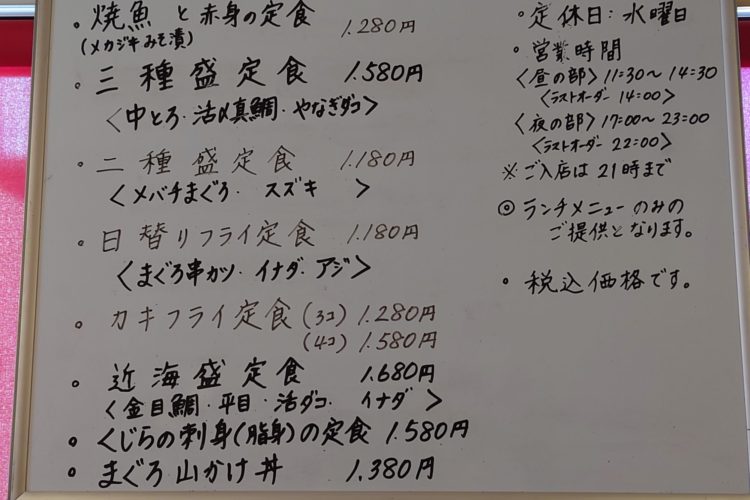 ・焼魚と赤身の定食 1.280円
(メカジキみそ漬)
・三種盛定食 1.580円
〈中とろ・活〆真鯛・やなぎダコ〉
・二種盛定食 1.180円
〈メバチまぐろ・スズキ 〉
・日替りフライ定食 1.180円
〈まぐろ串カツ・イナダ・アジ〉
・カキフライ定食(3コ) 1.280円
(4コ) 1.580円
・近海盛定食 1.680円
〈金目鯛・平目・活ダコ・イナダ〉
・くじらの刺身(脂身)の定食 1.580円
・まぐろ山かけ丼 1.380円
・定休日:水曜日
・営業時間
〈昼の部〉11:30〜14:30
〈ラストオーダー 14:00〉
〈夜の部〉17:00〜23:00
〈ラストオーダー 22:00〉
※ご入店は21時まで
◎ランチメニューのみの
ご提供となります。
・税込価格です。